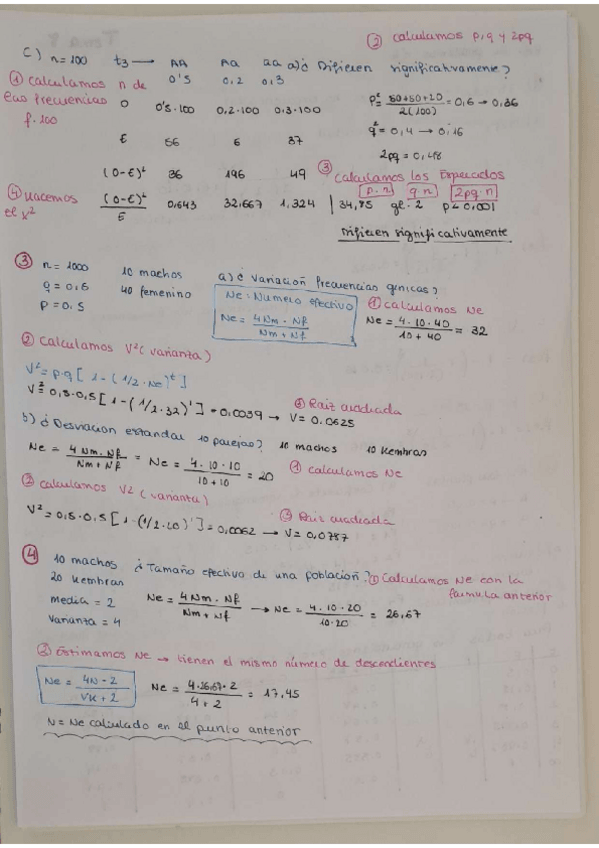 ② calculamos p, q y 2pq
C) n=100 t3 → AA Aa aa a) ¿ Difieren significativamente?
0'5 0,2 0,3
① calculamos n de las frecuencias f.100
O 0'5·100 0,2·100 0,3·100
p²= 50+50+20 / 2(100) = 0,6 → 0,36
q²= 0,4 → 0,16
E 56 6 37
2pq = 0,48
(O-E)² 36 196 49
③ calculamos los Esperados
p·n q·n 2pq·n
④ Hacemos el X²
(O-E)² / E 0,643 32,667 1,324 | 34,85 gl=2 p<0,001
Difieren significativamente
③ n = 1000 10 machos a) ¿ variación frecuencias génicas?
q = 0,5 40 femenino
p = 0,5
Ne = Número efectivo
Ne = 4Nm · Nf / Nm + Nf
① calculamos Ne
Ne = 4·10·40 / 10 + 40 = 32
② calculamos V² (varianza)
V² = p·q [ 1 - (1/2·Ne)^t ]
V² = 0,5·0,5 [ 1 - (1/2·32)¹ ] = 0,0039 → V = 0,0625
③ Raiz cuadrada
b) ¿ Desviación estandar 10 parejas? 10 machos 10 hembras
Ne = 4 Nm·Nf / Nm + Nf = Ne = 4·10·10 / 10 + 10 = 20
① calculamos Ne
② calculamos V2 (varianza)
V² = 0,5·0,5 [ 1 - (1/2·20)¹ ] = 0,0062 → V = 0,0787
③ Raiz cuadrada
④ 10 machos ¿ Tamaño efectivo de una población? ① Calculamos Ne con la fórmula anterior
20 hembras
media = 2
varianza = 4
Ne = 4Nm·Nf / Nm + Nf → Ne = 4·10·20 / 10·20 = 26,67
② Estimamos Ne → tienen el mismo número de descendientes
Ne = 4N - 2 / Vk + 2
Ne = 4·26,67·2 / 4 + 2 = 17,45
N = Ne calculado en el punto anterior